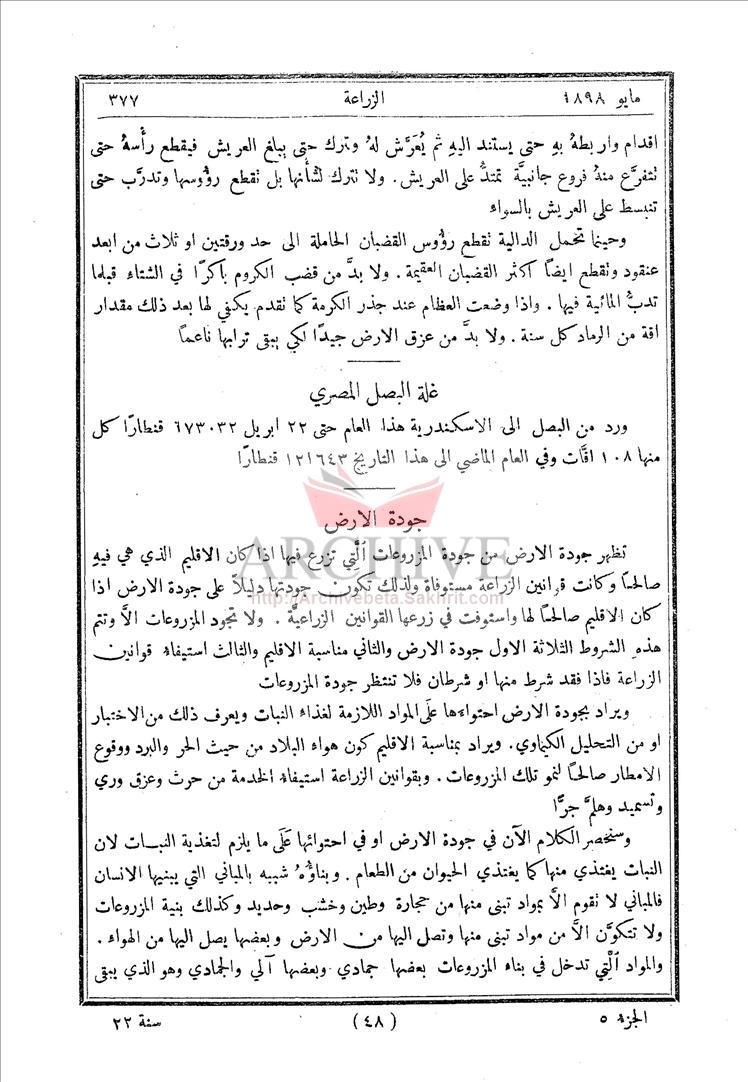 مايو ١٨٩٨
الزراعة
٣٧٧
اقدام واربطهُ بهِ حتى يستند اليهِ ثم يُعَرَّش لهُ وترك حتى يبلغ العريش فيقطع رأسهُ حتى
تتفرَّع منهُ فروع جانبيَّة تمتدُّ على العريش. ولا تترك لشأنها بل تقطع رؤُوسها وتدرَّب حتى
تنبسط على العريش بالسواء
وحينما تحمل الدالية تقطع رؤُوس القضبان الحاملة الى حد ورقتين او ثلاث من ابعد
عنقود وتقطع ايضاً اكثر القضبان العقيمة. ولا بدَّ من قضب الكروم باكرًا في الشتاء قبلما
تدبُّ المائية فيها. واذا وضعت العظام عند جذر الكرمة كما تقدم يكفي لها بعد ذلك مقدار
اقة من الرماد كل سنة. ولا بدَّ من عزق الارض جيدًا لكي يبقى ترابها ناعمًا
غلة البصل المصري
ورد من البصل الى الاسكندرية هذا العام حتى ٢٢ ابريل ٦٧٣٠٣٢ قنطارًا كل
منها ١٠٨ اقَّات وفي العام الماضي الى هذا التاريخ ١٢١٦٤٣ قنطارًا
جودة الارض
تظهر جودة الارض من جودة المزروعات الَّتي تزرع فيها اذا كان الاقليم الذي هي فيهِ
صالحًا وكانت قوانين الزراعة مستوفاة ولذلك تكون جودتها دليلاً على جودة الارض اذا
كان الاقليم صالحًا لها واستوفت في زرعها القوانين الزراعيَّة. ولا تجود المزروعات الاَّ وتتم
هذه الشروط الثلاثة الاول جودة الارض والثاني مناسبة الاقليم والثالث استيفاء قوانين
الزراعة فاذا فقد شرط منها او شرطان فلا تنتظر جودة المزروعات
ويراد بجودة الارض احتواءها عَلَى المواد اللازمة لغذاء النبات ويعرف ذلك من الاختبار
او من التحليل الكيماوي. ويراد بمناسبة الاقليم كون هواء البلاد من حيث الحر والبرد ووقوع
الامطار صالحًا لنمو تلك المزروعات. وبقوانين الزراعة استيفاء الخدمة من حرث وعزق وري
وتسميد وهلمَّ جرًّا
وسنحصر الكلام الآن في جودة الارض او في احتوائها عَلَى ما يلزم لتغذية النبات لان
النبات يغتذي منها كما يغتذي الحيوان من الطعام. وبناؤُهُ شبيه بالمباني التي يبنيها الانسان
فالمباني لا تقوم الاَّ بمواد تبنى منها من حجارة وطين وخشب وحديد وكذلك بنية المزروعات
ولا تتكوَّن الاَّ من مواد تبنى منها وتصل اليها من الارض وبعضها يصل اليها من الهواء.
والمواد الَّتِي تدخل في بناء المزروعات بعضها جمادي وبعضها آلي والجمادي وهو الذي يبقى
الجزء ٥
(٤٨)
سنة ٢٢
ARCHIVE
http://Archivebeta.Sakhrit.com